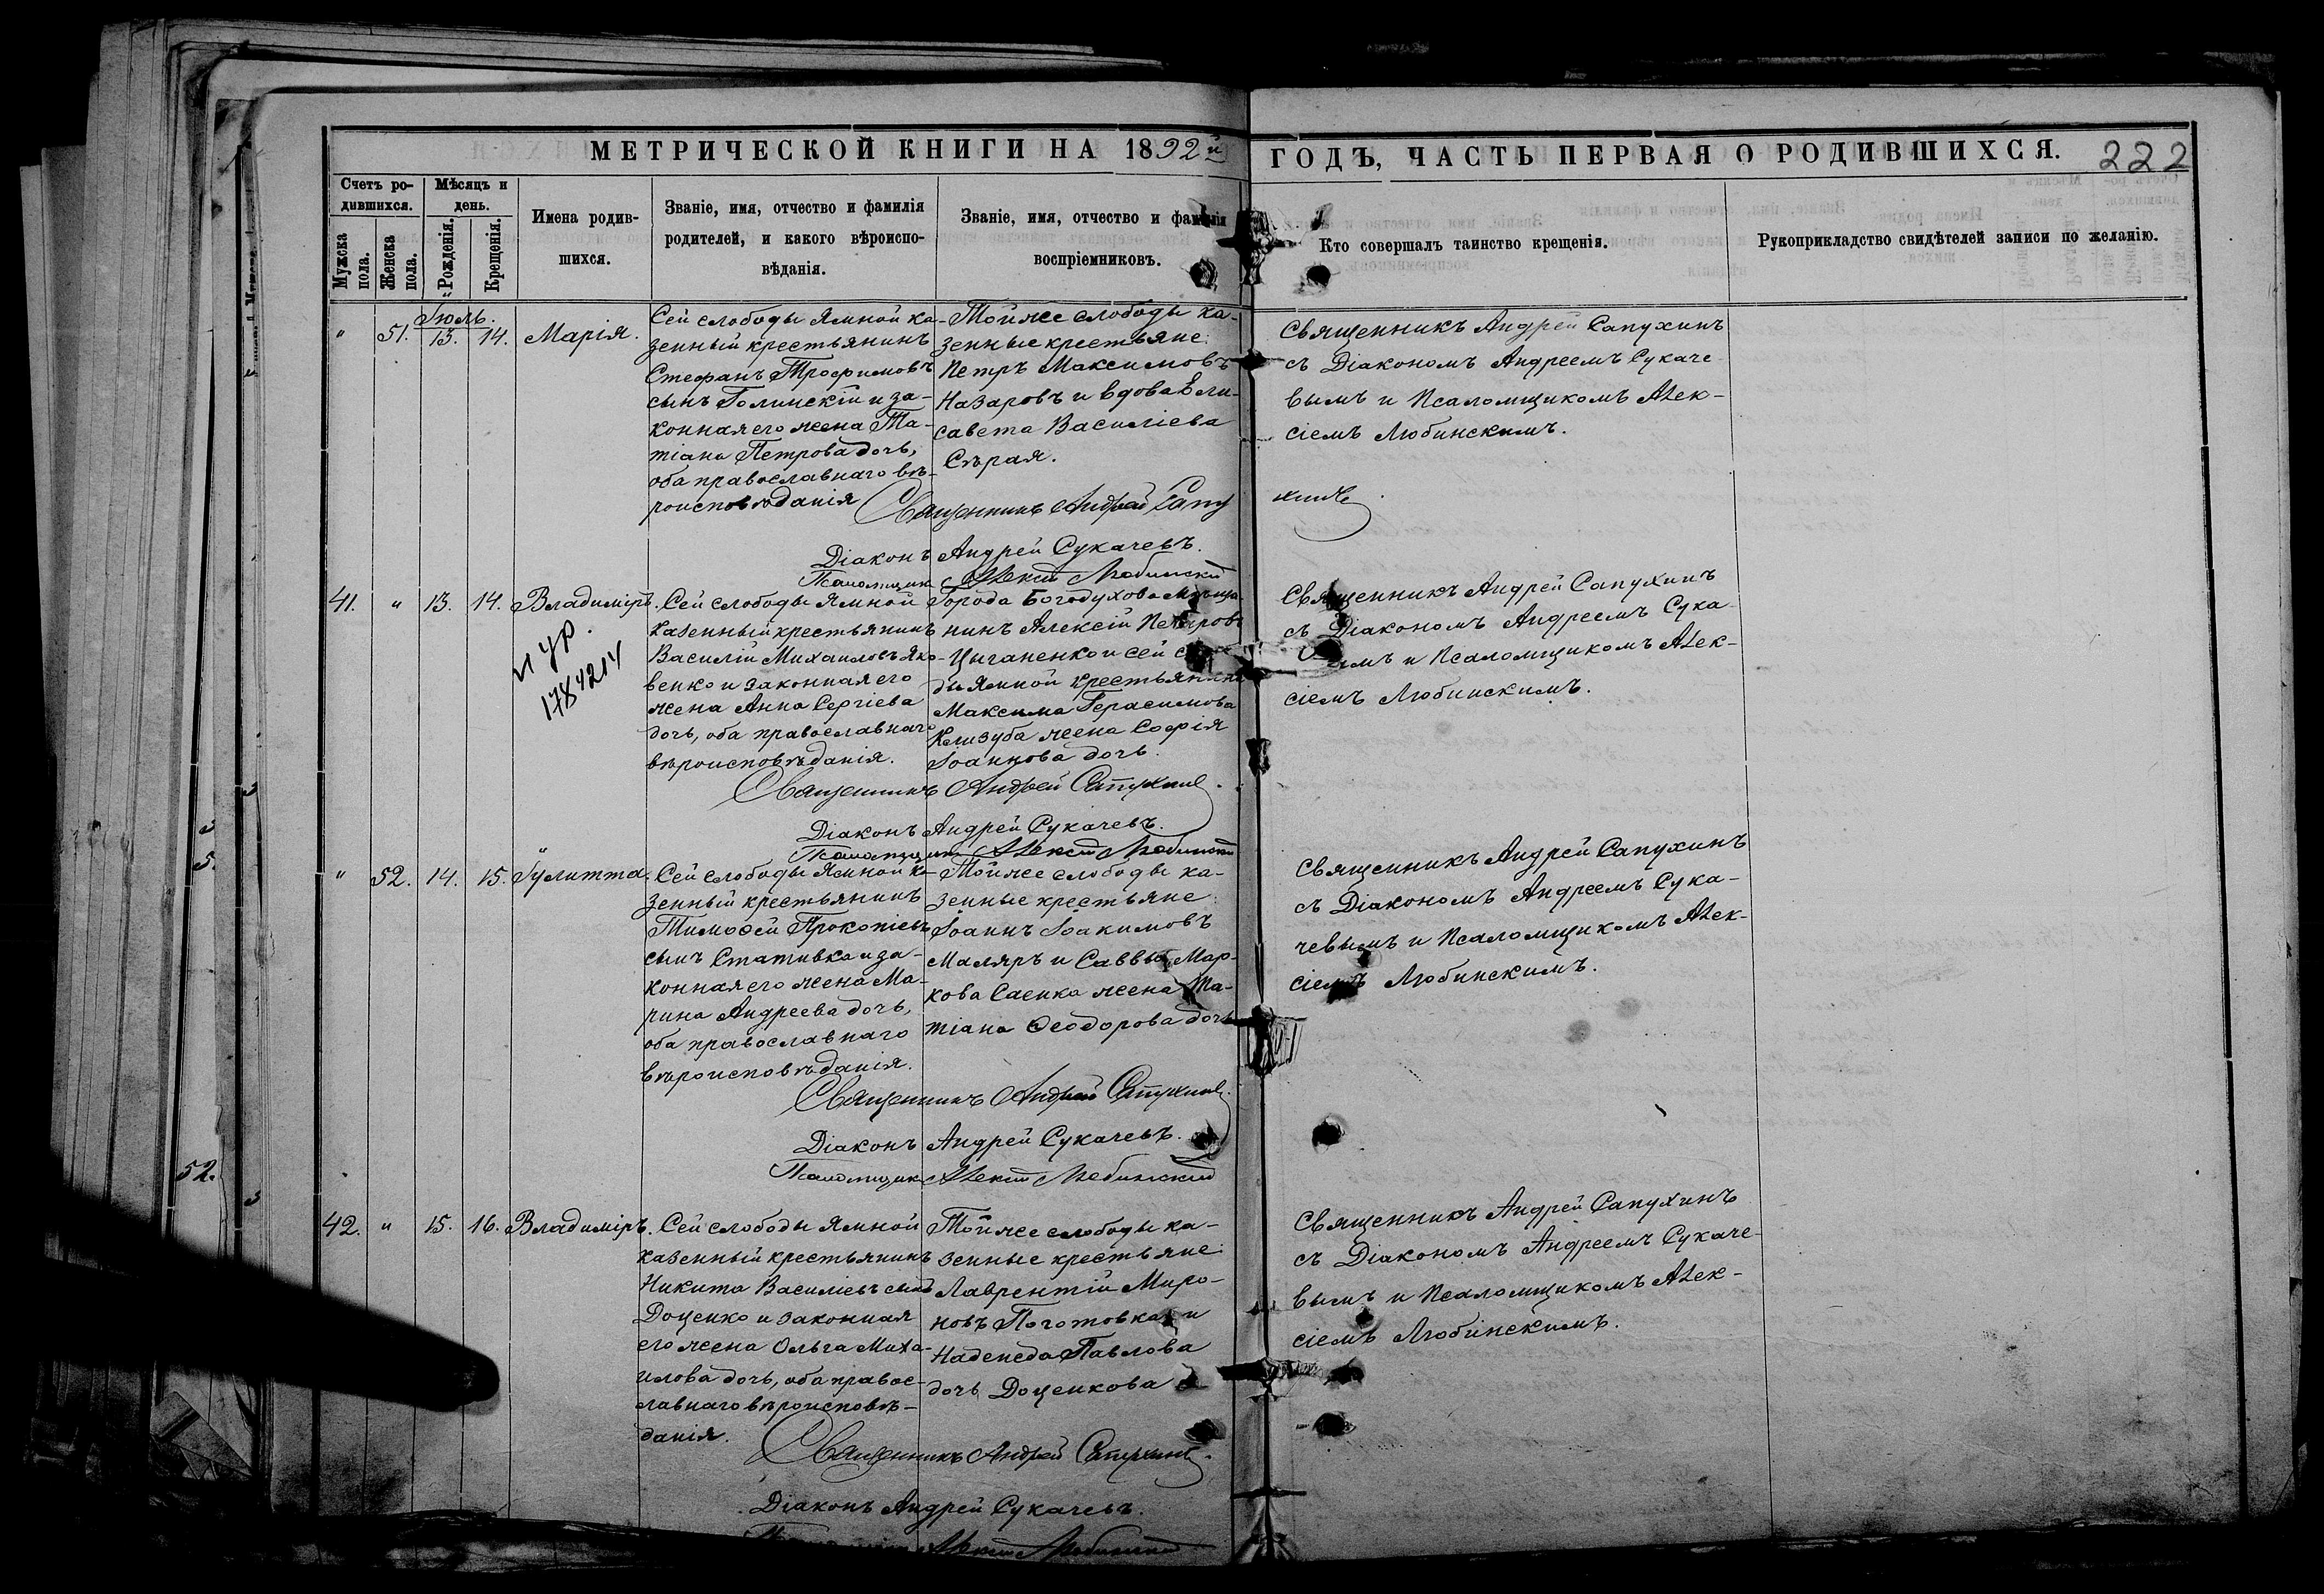 МЕТРИЧЕСКОЙ КНИГИ НА 1892й ГОДЪ, ЧАСТЬ ПЕРВАЯ О РОДИВШИХСЯ. 222
Счетъ ро-
дившихся.
Мѣсяцъ и
день.
Мужска
пола.
Женска
пола.
Рожденія.
Крещенія.
Имена родив-
шихся.
Званіе, имя, отчество и фамилія
родителей, и какого вѣроиспо-
вѣданія.
Званіе, имя, отчество и фамилія
воспріемниковъ.
Кто совершалъ таинство крещенія.
Рукоприкладство свидѣтелей записи по желанію.
Іюль.
" 51. 13. 14. Марія.
Сей слободы Ямной ка-
зенный крестьянинъ
Стефанъ Трофимовъ
сынъ Голинскій и за-
конная его жена Та-
тіана Петрова дочь,
оба православнаго вѣ-
роисповѣданія
Той же слободы ка-
зенные крестьяне:
Петръ Максимовъ
Назаровъ и вдова Ели-
савета Василіева
Сѣрая.
Священникъ Андрей Сапухинъ
съ Діакономъ Андреемъ Сукаче-
вымъ и Псаломщикомъ Алек-
сіемъ Любинскимъ.
Священникъ Андрей Сапу
хинъ
Діаконъ Андрей Сукачевъ.
Псаломщик Алексій Любинскій
41. " 13. 14. Владиміръ.
178421
Сей слободы Ямной
казенный крестьянинъ
Василій Михаиловъ Яко-
венко и законная его
жена Анна Сергіева
дочь, оба православнаго
вѣроисповѣданія.
Города Богодухова мѣща-
нинъ Алексій Петровъ
Цыганенко и сей
ды Ямной крестьянина
Максима Герасимова
жена Софія
Іоаннова дочь.
Священникъ Андрей Сапухинъ
съ Діакономъ Андреемъ Сука-
вымъ и Псаломщикомъ Алек-
сіемъ Любинскимъ.
Священникъ Андрей Сапухинъ.
Діаконъ Андрей Сукачевъ.
Псаломщик Алексій Любинскій
" 52. 14. 15. Іулитта.
Сей слободы Ямной ка-
зенный крестьянинъ
Тимоѳей Прокопіевъ
сынъ Стативка и за-
конная его жена Ма-
рина Андреева дочь,
оба православнаго
вѣроисповѣданія.
Той же слободы ка-
зенные крестьяне:
Іоаннъ Іоакимовъ
Маляръ и Саввы Мар-
кова Саенка жена Та-
тіана Ѳеодорова дочь
Священникъ Андрей Сапухинъ
съ Діакономъ Андреемъ Сука-
чевымъ и Псаломщикомъ Алек-
сіемъ Любинскимъ.
Священникъ Андрей Сапухинъ.
Діаконъ Андрей Сукачевъ.
Псаломщик Алексій Любинскій
52.
42. " 15. 16. Владиміръ.
Сей слободы Ямной
казенный крестьянинъ
Никита Василіевъ сынъ
Доценко и законная
его жена Ольга Миха-
илова дочь, оба правос-
лавнаго вѣроисповѣ-
данія.
Той же слободы ка-
зенные крестьяне:
Лаврентій Миро-
новъ Поготовка и
Надежда Павлова
дочь Доценкова
Священникъ Андрей Сапухинъ
съ Діакономъ Андреемъ Сукаче-
вымъ и Псаломщикомъ Алек-
сіемъ Любинскимъ.
Священникъ Андрей Сапухинъ.
Діаконъ Андрей Сукачевъ.
Алексій Любинскій